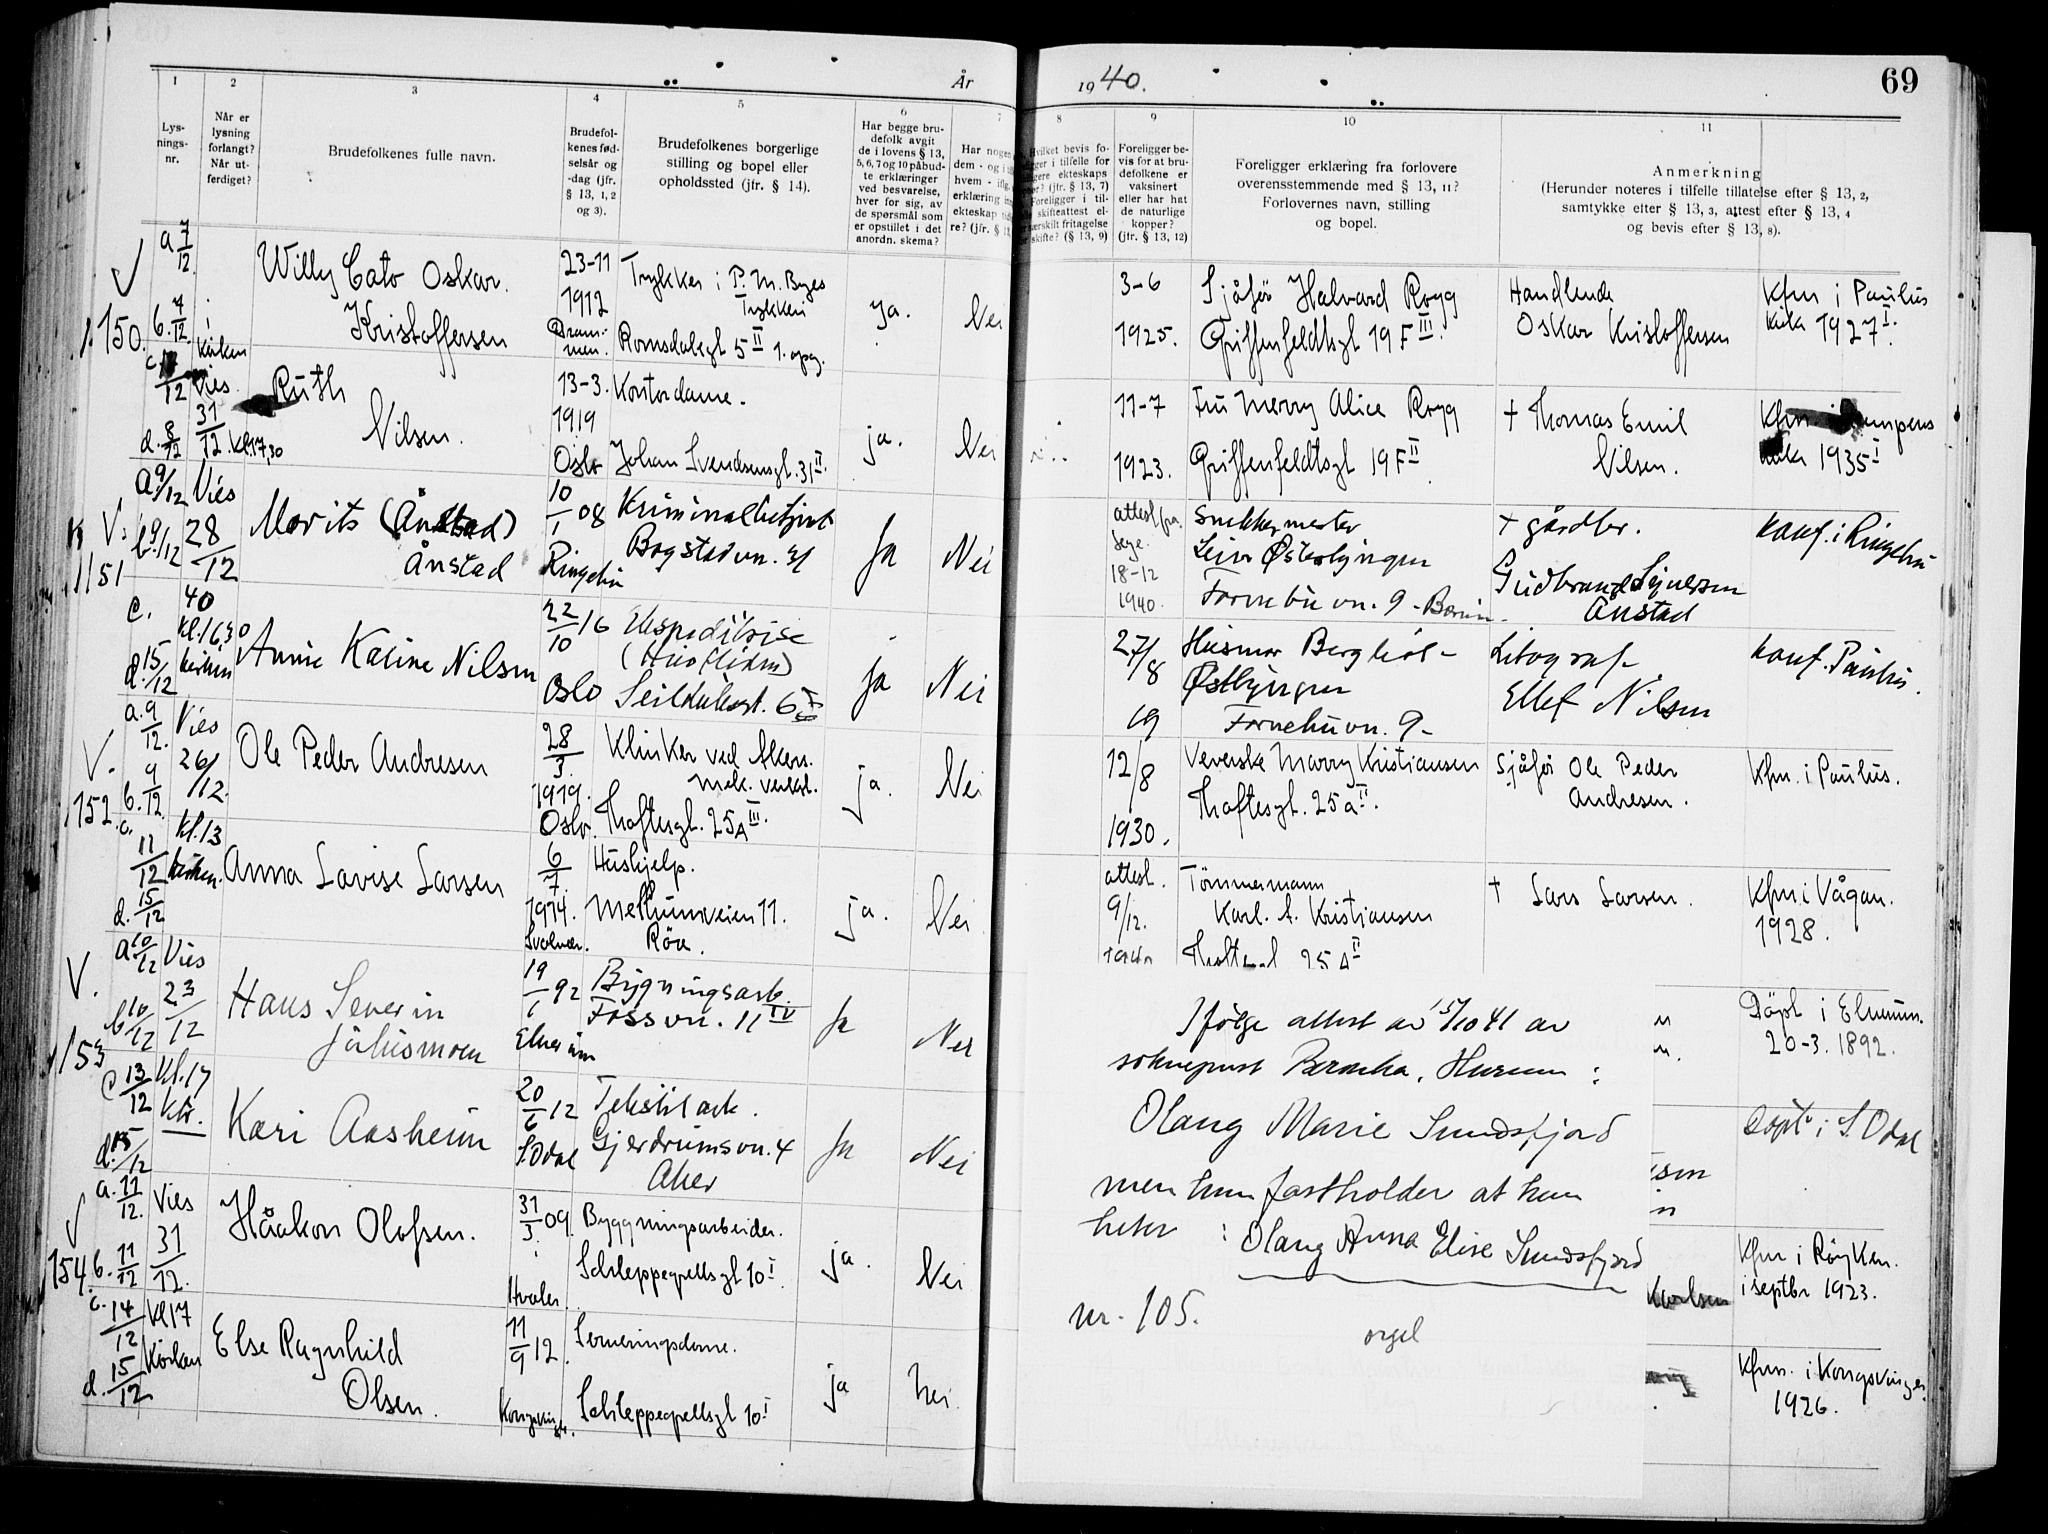 År 1940.
69
1
2
3
4
5
6
7
8
9
10
11
Lys-
nings-
nr.
Når er
lysning
forlangt?
Når ut-
ferdiget?
Brudefolkenes fulle navn.
Brudefol-
kenes fød-
selsår og
-dag (jfr.
§ 13, 1, 2
og 3).
Brudefolkenes borgerlige
stilling og bopel eller
opholdssted (jfr. § 14).
Har begge bru-
defolk avgit
de i lovens § 13,
5, 6, 7 og 10 påbud-
te erklæringer
ved besvarelse,
hver for sig, av
de spørsmål som
er opstillet i det
anordn. skema?
Har nogen
dem - og i
hvem - iflg.
erklæring in
ekteskap tid
re? (jfr. § 1
Hvilket bevis fo-
ligger i tilfelle for
ligere ekteskaps
(jfr. § 13, 7)
Foreligger i til-
skifteattest el-
særskilt fritagelse
skifte? (§ 13, 9)
Foreligger be-
vis for at bru-
defolkene er
vaksinert
eller har hat
de naturlige
kopper?
(jfr. § 13, 12)
Foreligger erklæring fra forlovere
overensstemmende med § 13, 11?
Forlovernes navn, stilling
og bopel.
Anmerkning
(Herunder noteres i tilfelle tillatelse efter § 13, 2,
samtykke efter § 13, 3, attest efter § 13, 4
og bevis efter § 13, 8).
150.
a. 7/12
b. 7/12 i
Kirken
Vies
31/12. kl. 17,30
d. 8/12
Willy Cato Oskar.
Kristoffersen
23-11
1912
Dram-
men.
Trykker i P. M. Byes
Trykkeri
Romsdalsgt 5 II 1. opg.
ja.
Nei
3-6
1925.
Sjåfør Halvard Rygg
Griffenfeldtsgt 19 F III.
Handlende
Oskar Kristoffersen
Kfm i Paulus
kirke 1927 I.
Ruth
Nilsen.
13-3.
1919
Oslo
Kontordame.
Johan Svendsensgt. 31 II.
ja.
Nei
11-7
1923.
Fru Merry Alice Rygg
Griffenfeldtsgt 19 F II
† Thomas Emil
Nilsen.
Kfm. i
1935 I
1151
a 9/12 Vies
b. 9/12 28/12
40
c. kl. 1630
d. 15/12 kirken
Morits (Ånstad)
Ånstad
10/1 08
Ringebu
Kriminalbetjent
Bogstadvn. 31
Ja
Nei
attest fra
18-12
1940.
Snekkermester
Østbyngen
Fornebuvn. 9 - Bærum.
† gårdbr.
Gudbrand Syversen
Ånstad
konf. i Ringebu
Annie Karine Nilsen
22/10 16
Oslo
Ekspeditrise
(Husfliden)
Seilduksgt. 6
Ja
Nei
27/8
19
Husmor Bergliot
Østbyngen
Fornebuvn. 9-
Litograf
Ellef Nilsen
konf. Paulus.
152.
a. 9/12. Vies
b. 9/12. 26/12.
c. 11/12 kl. 13
kirken.
d. 15/12
Ole Peder Andresen
28/3.
1919.
Oslo.
Klinker ved Akers.
mek. verkst.
Thoftesgt. 25A III.
ja.
Nei
12/8
1930.
Veverske Marry Kristiansen
Thoftesgt. 25 a II.
Sjåfør Ole Peder
Andresen.
Kfm. i Paulus.
Anna Lovise Larsen
6/7.
1914.
Svolvær.
Hushjelp.
Mellumveien 11.
Röa.
ja.
Nei
attest.
9/12.
Tömmermann
Karl. A. Kristiansen
25 A II
† Lars Larsen.
Kfm. i Vågan.
1928.
153
a. 10/12 Vies
b 10/12 23/12
c 13/12 kl. 17
kir.
d. 15/12
Hans Severin
Julusmoen
19/1 92
Elverum
Bygningsarb.
Fossvn. 11 IV
Ja
Nei
Döpt i Elverum.
20-3. 1892.
Kari Aasheim
20/6 12
S. Odal
Tekstilarb.
Gjerdrumsvn. 4
Aker
Ja
Nei
Döpt i S. Odal
154.
a. 11/12. Vies
b. 11/12 31/12.
c. 14/12 kl 17
Kirken
d. 15/12
Håakon Olofsen.
31/3 09.
Hvaler.
Byggningsarbeider.
Schleppegrellsgt 10 I.
ja.
Nei
Karlsen
Kfm i Røyken.
i septbr 1923.
Else Ragnhild
Olsen.
11/9 12.
Kongsvinger.
Serveringsdame.
Schleppegrellsgt 10 I
ja
nei
Kfm. i Kongsvinger.
1926.
Ifølge attest av 15/10 41 av
sogneprest Beronka, Hurum:
Olaug Marie Sundsfjord
men hun fastholder at hun
heter : Olaug Anna Elise Sundsfjord
nr. 105.
orgel